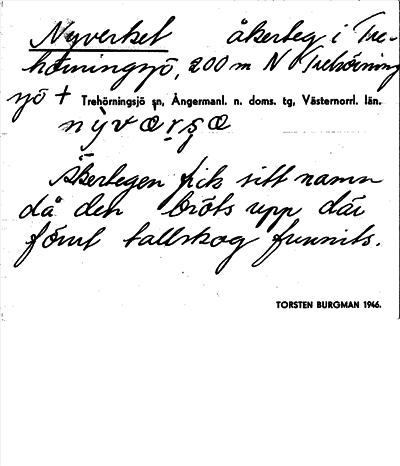 Nyverket åkerteg i Tre-
hörningsjö, 200 m N Trehörning
sjö + Trehörningsjö sn, Ångermanl. n. doms. tg, Västernorrl. län.
Åkertegen fick sitt namn
då den bröts upp där
förut tallskog funnits.
TORSTEN BURGMAN 1946.